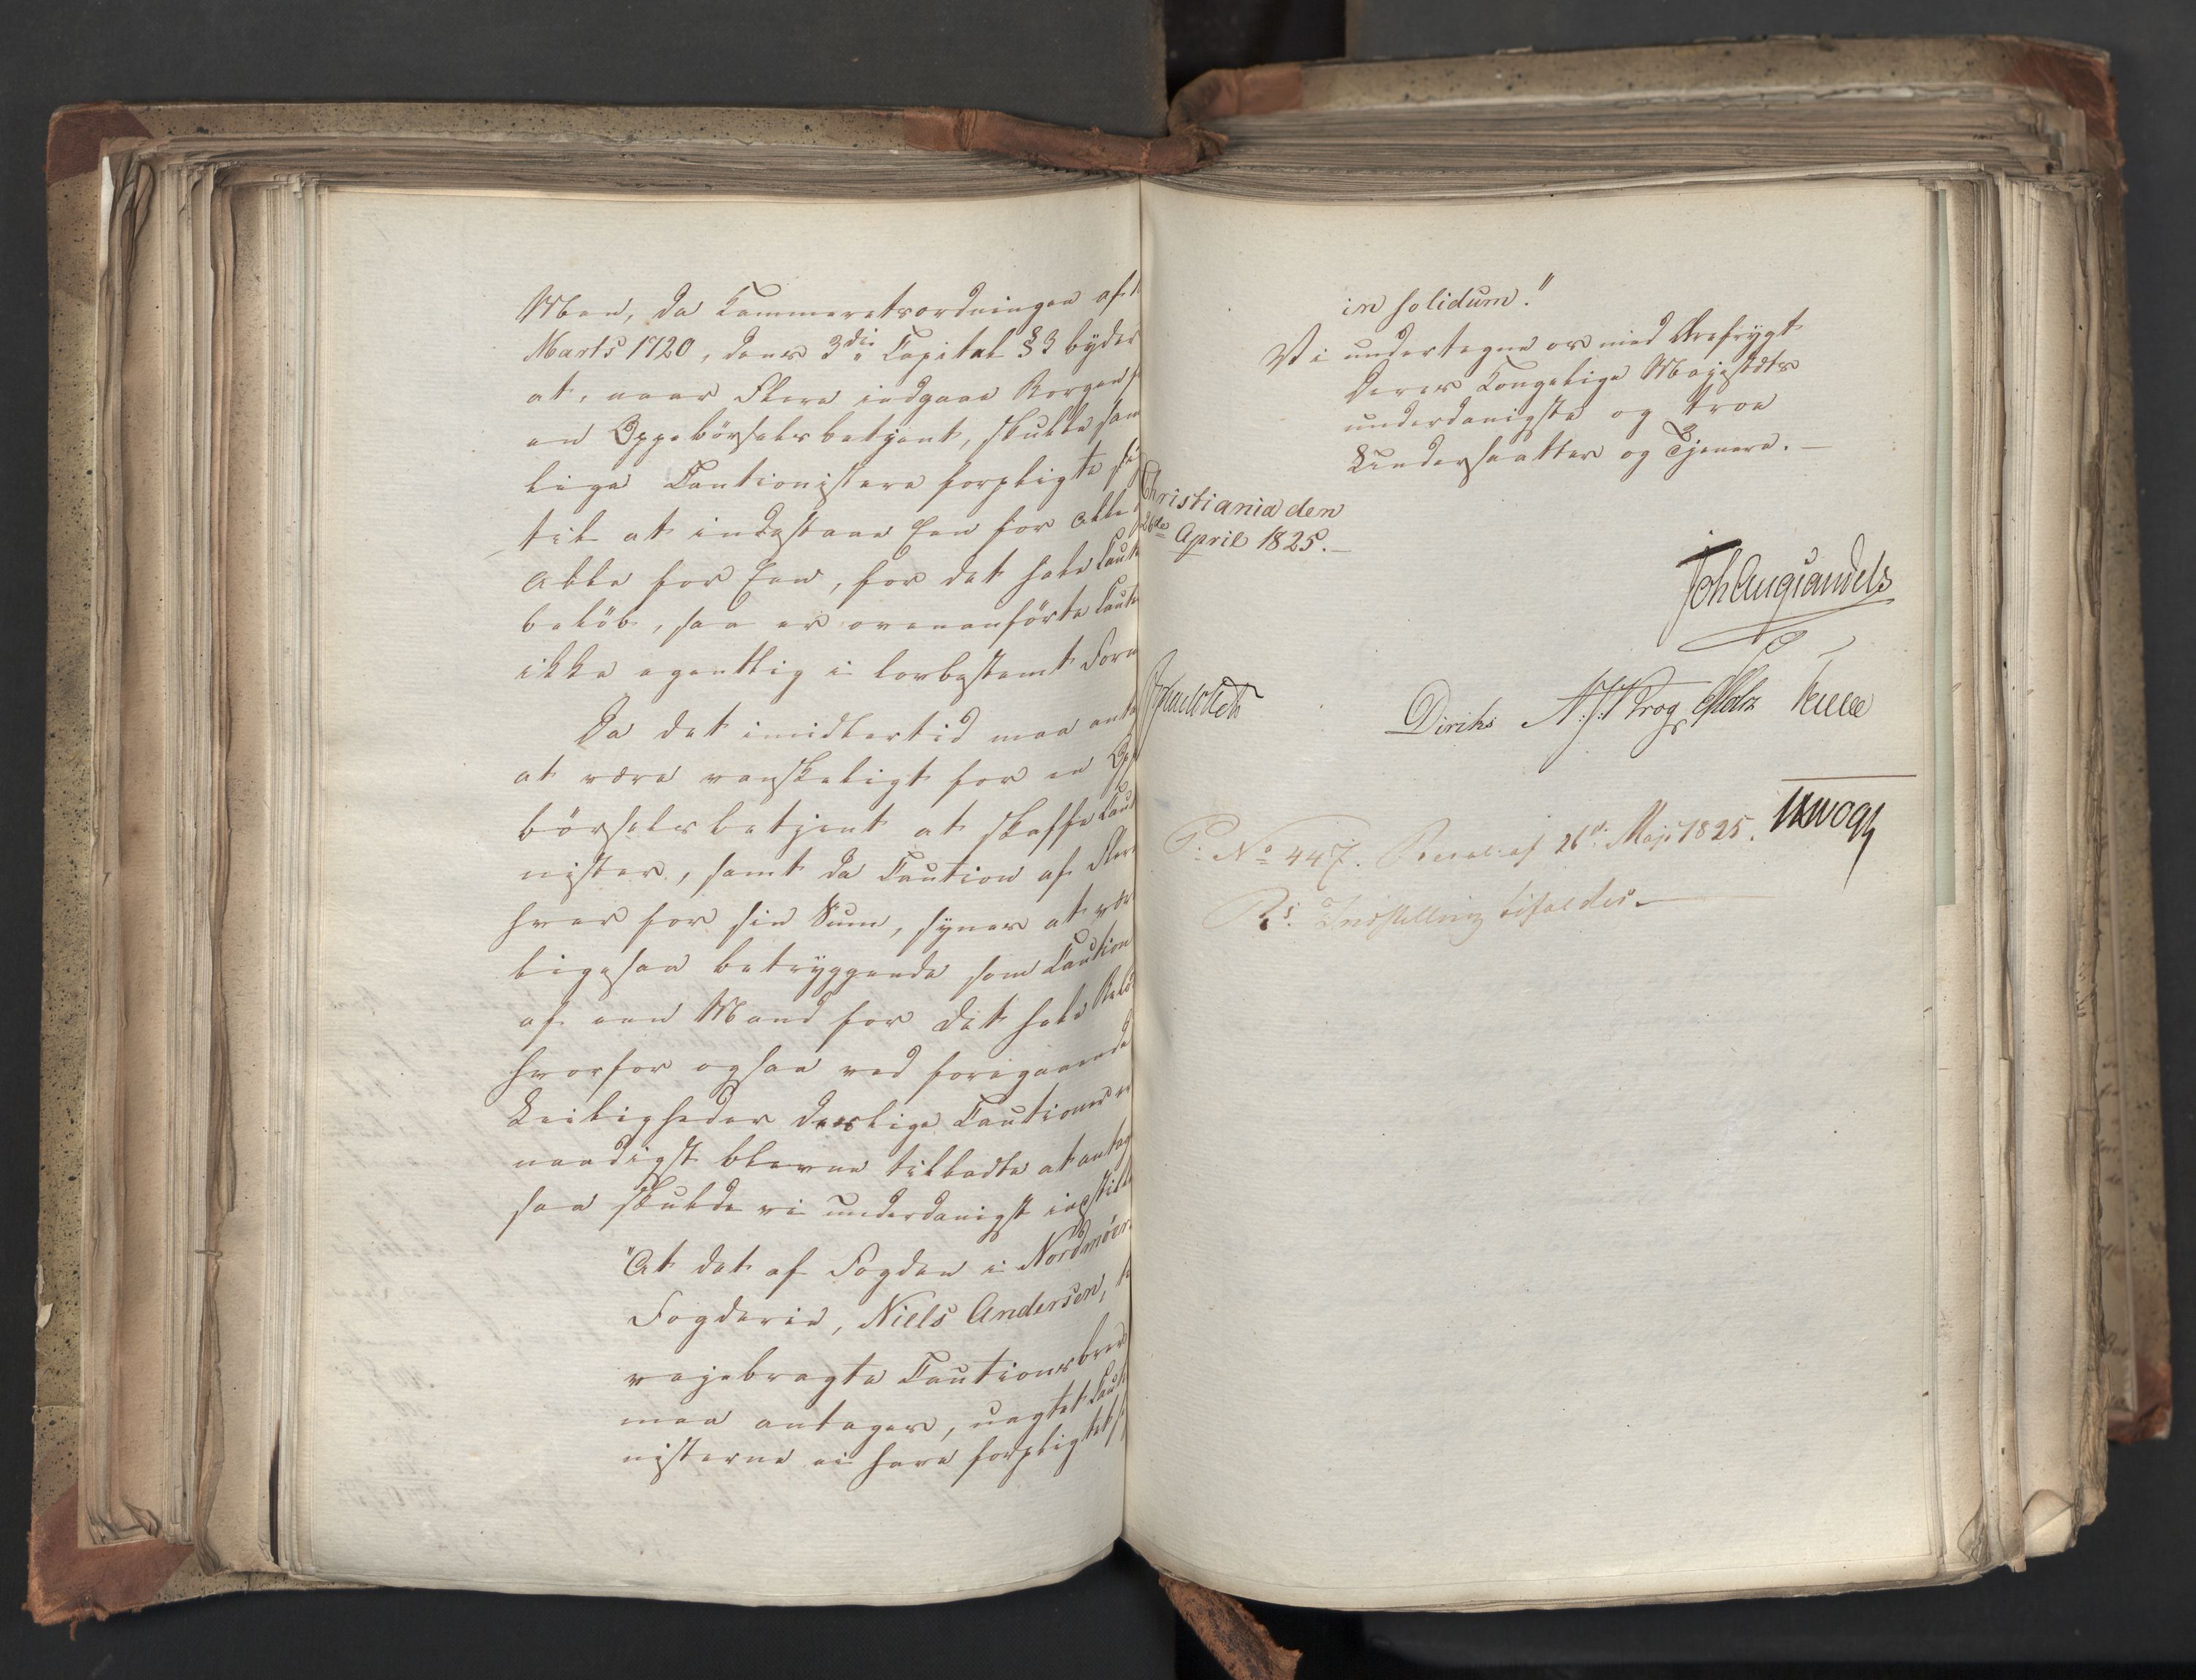 Men, da Kammerretsordningen af
Marts 1720, dens 3die Capitel § 3 byder
at, naar Flere indgaae Borgen
en Oppebörselsbetjent, skulle sam
lige Cautionistere forpligte sig
til at indestaae Een for Alle
Alle for Een, for det hele Caut
belöb, saa er ovenanförte Caut
ikke egentlig i lovbestemt Form
Da det imidlertid maa anta
at være vanskeligt for en Op
börselsbetjent at skaffe Caut
nister, samt da Caution af Flere
hver for sin Sum, synes at være
ligesaa betryggende som Caution
af een Mand for det hele Belö
hvorfor ogsaa ved foregaaende
Leiligheder deslige Cautioner
naadigst blevne tilladte at antag
saa skulde vi underdanigst indstille
"At det af Fogden i Nordmöers
Fogderie, Niels Andersen,
vejebragte Cautionsbrev
maa antages, uagtet Caut
nisterne ei have forpligtet
in solidum."
Vi undertegne os med Ærefrygt
Deres Kongelige Majestæts
underdanigste og troe
Undersaatter og Tjenere. —
Christiania den
26de April 1825. —
Joh Aug Sandels
Diriks A. J. Krog
P: No 447. Resol: af 26de Maji 1825.
Rs. Indstilling bifaldes. —